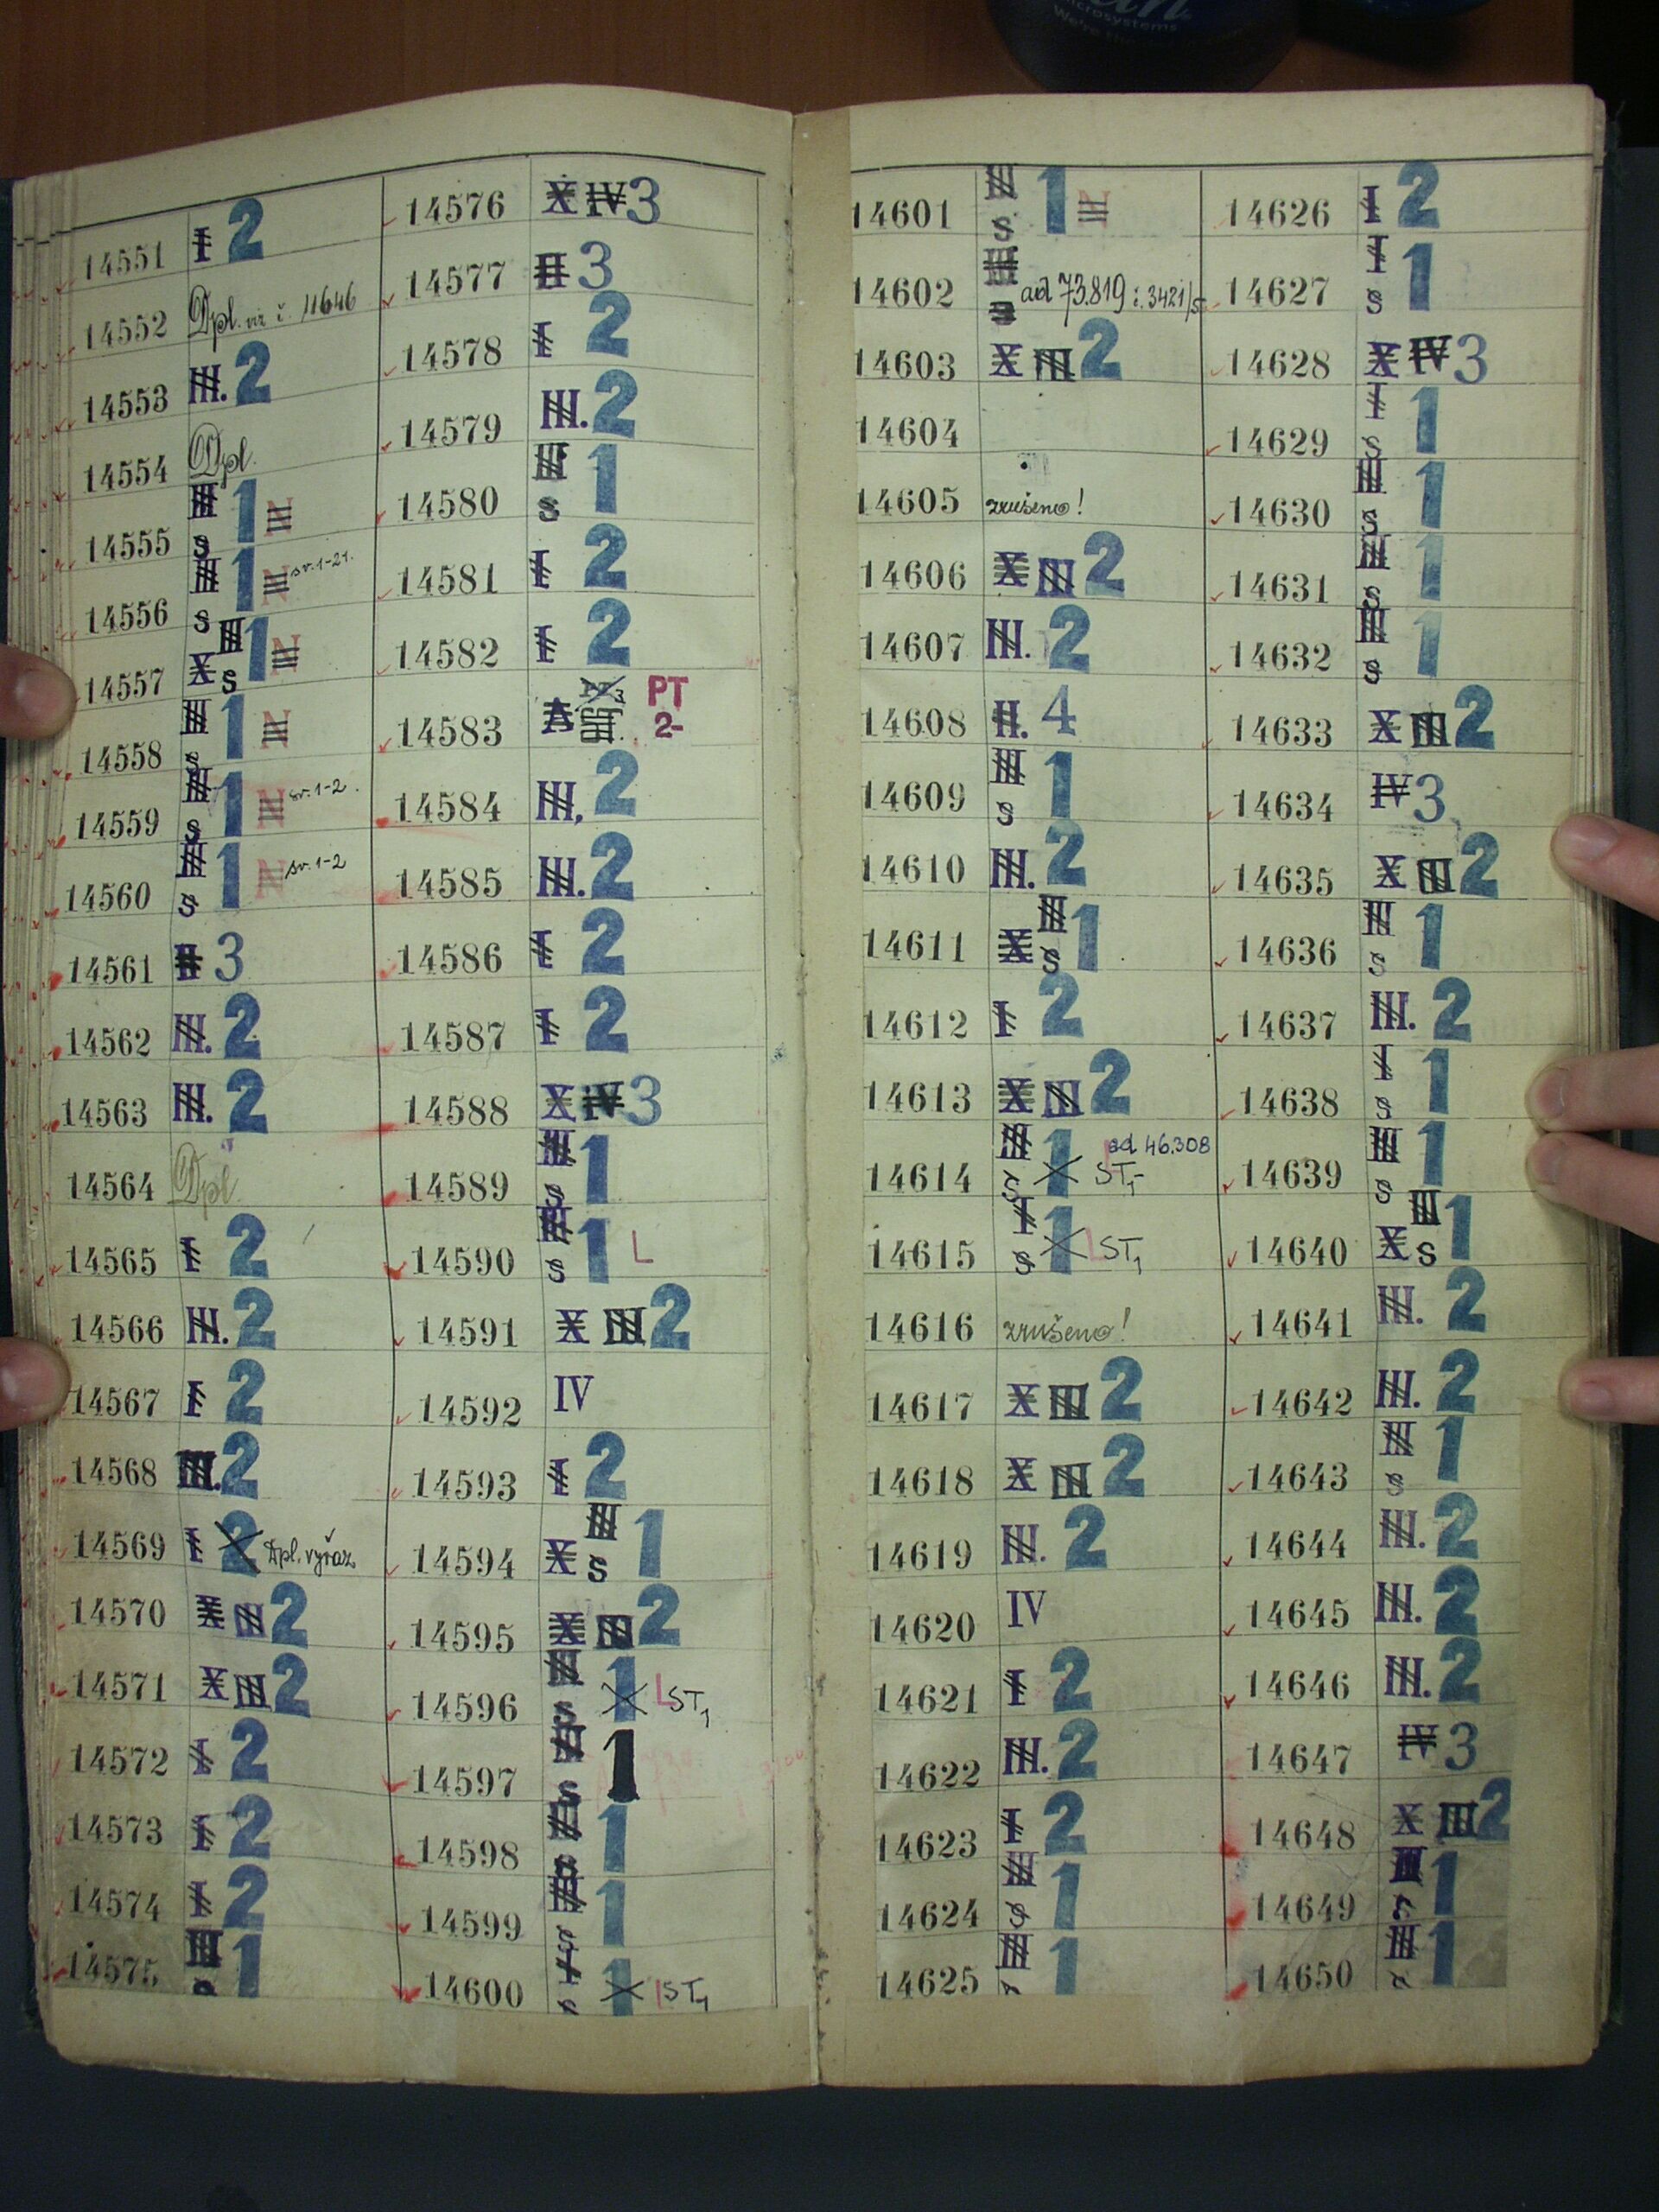 Microsystems
14551 I 2
14552 Dpl. viz č. 11646
14553 III. 2
14554 Dpl.
14555 III s 1 N
14556 III s 1 N sv. 1-21.
14557 X III s 1 N
14558 III s 1 N
14559 III s 1 N sv. 1-2.
14560 III s 1 N sv. 1-2
14561 II 3
14562 III. 2
14563 III. 2
14564 Dpl.
14565 I 2
14566 III. 2
14567 I 2
14568 III. 2
14569 I 2 Dpl. vyřaz.
14570 X III 2
14571 X III 2
14572 I 2
14573 I 2
14574 I 2
14575 III s 1
14576 X IV 3
14577 II 3
14578 I 2
14579 III. 2
14580 III s 1
14581 I 2
14582 I 2
14583 A PT 2-
14584 III. 2
14585 III. 2
14586 I 2
14587 I 2
14588 X IV 3
14589 III s 1
14590 III s 1 L
14591 X III 2
14592 IV
14593 I 2
14594 X III s 1
14595 X III 2
14596 III s 1 L ST1
14597 III s 1
14598 III s 1
14599 III s 1
14600 I s 1 ST1
14601 III s 1 N
14602 III s ad 73.819 č. 3421/5
14603 X III 2
14604
14605 zrušeno!
14606 X III 2
14607 III. 2
14608 II. 4
14609 III s 1
14610 III. 2
14611 X III s 1
14612 I 2
14613 X III 2
14614 III s 1 ad 46.308 ST1
14615 I s 1 L ST1
14616 zrušeno!
14617 X III 2
14618 X III 2
14619 III. 2
14620 IV
14621 I 2
14622 III. 2
14623 I 2
14624 III s 1
14625 III s 1
14626 I 2
14627 I s 1
14628 X IV 3
14629 I s 1
14630 III s 1
14631 III s 1
14632 III s 1
14633 X III 2
14634 IV 3
14635 X III 2
14636 III s 1
14637 III. 2
14638 I s 1
14639 III s 1
14640 X III s 1
14641 III. 2
14642 III. 2
14643 III s 1
14644 III. 2
14645 III. 2
14646 III. 2
14647 IV 3
14648 X III 2
14649 III s 1
14650 III s 1